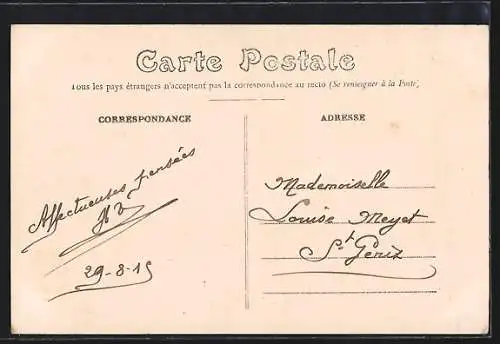 Carte Postale
Tous les pays étrangers n'acceptent pas la correspondance au recto (Se renseigner à la Poste)
CORRESPONDANCE
Affectueuses pensées
29-8-15
ADRESSE
Mademoiselle
Louise Meyet
St Genix